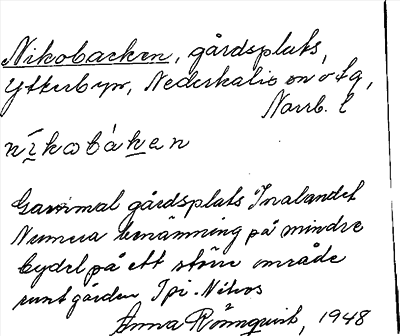 Nikobacken, gårdsplats,
Ytterbyn, Nederkalix sn ö fg,
Norrb. l
nìkobáken
Gammal gårdsplats Inalandet
Numera benämning på mindre
bydel på ett större område
runt gården Tpi. Nikos
Anna Rönnqvist, 1948